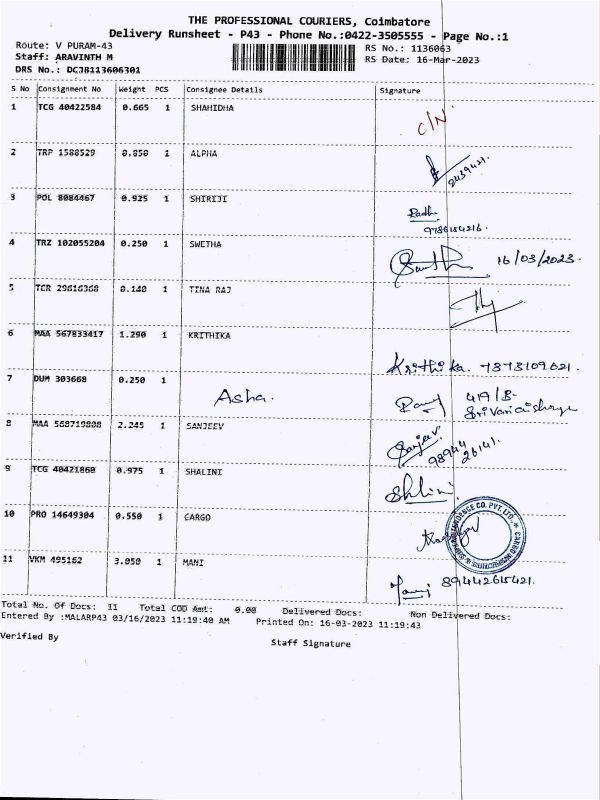 THE PROFESSIONAL COURIERS, Coimbatore
Delivery Runsheet - P43 - Phone No.:0422-3505555 - Page No.:1
Route: V PURAM-43 RS No.: 1136063
Staff: ARAVINTH M RS Date: 16-Mar-2023
DRS No.: DCJB113606301
S No Consignment No Weight PCS Consignee Details Signature
1 TCG 40422584 0.665 1 SHAHIDHA C/N
2 TRP 1588529 0.850 1 ALPHA
3 POL 8084467 0.925 1 SHIRIJI
4 TRZ 102055204 0.250 1 SWETHA 16/03/2023.
5 TCR 29616368 0.140 1 TINA RAJ
6 MAA 567833417 1.290 1 KRITHIKA Krithika.
7 DUM 303668 0.250 1 Asha. 419/B-
8 MAA 568719808 2.245 1 SANJEEV Sanjeev
98944
26141.
9 TCG 40421860 0.975 1 SHALINI Shlini
10 PRO 14649304 0.550 1 CARGO
11 VKM 495162 3.050 1 MANI Mani
Total No. Of Docs: 11 Total COD Amt: 0.00 Delivered Docs: Non Delivered Docs:
Entered By :MALARP43 03/16/2023 11:19:40 AM Printed On: 16-03-2023 11:19:43
Verified By Staff Signature